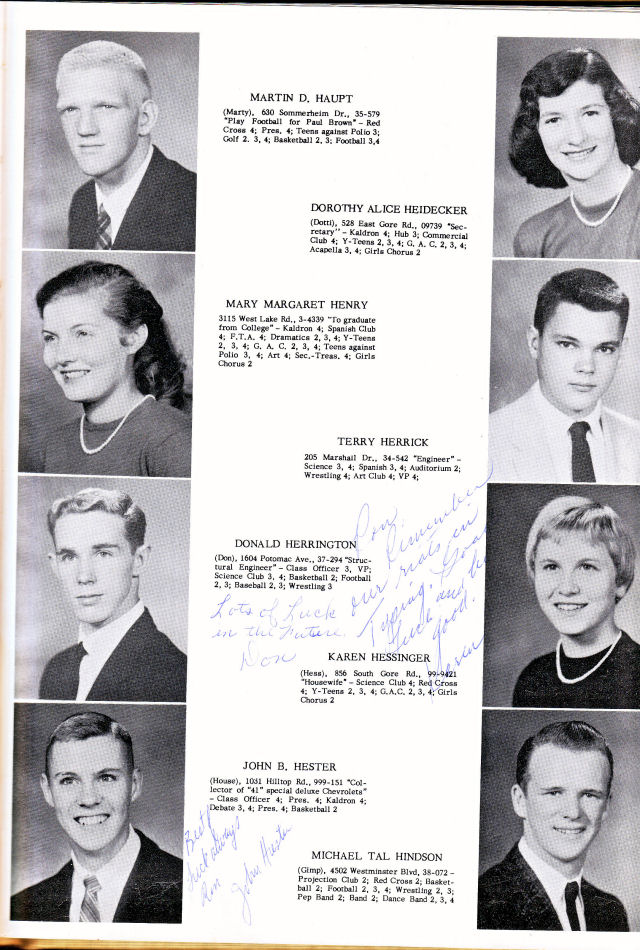 MARTIN D. HAUPT
(Marty), 630 Sommerheim Dr., 35-579
"Play Football for Paul Brown" - Red
Cross 4; Pres. 4; Teens against Polio 3;
Golf 2. 3, 4; Basketball 2, 3; Football 3,4
DOROTHY ALICE HEIDECKER
(Dotti), 528 East Gore Rd., 09739 "Sec-
retary" - Kaldron 4; Hub 3; Commercial
Club 4; Y-Teens 2, 3, 4; G. A. C. 2, 3, 4;
Acapella 3, 4; Girls Chorus 2
MARY MARGARET HENRY
3115 West Lake Rd., 3-4339 "To graduate
from College" - Kaldron 4; Spanish Club
4; F.T.A. 4; Dramatics 2, 3, 4; Y-Teens
2, 3, 4; G. A. C. 2, 3, 4; Teens against
Polio 3, 4; Art 4; Sec.-Treas. 4; Girls
Chorus 2
TERRY HERRICK
205 Marshall Dr., 34-542 "Engineer" -
Science 3, 4; Spanish 3, 4; Auditorium 2;
Wrestling 4; Art Club 4; VP 4;
DONALD HERRINGTON
(Don), 1604 Potomac Ave., 37-294 "Struc-
tural Engineer" - Class Officer 3, VP;
Science Club 3, 4; Basketball 2; Football
2, 3; Baseball 2, 3; Wrestling 3
Lots of Luck
in the Future.
Don
Ron,
Remember
our riots in
Typing. Good
luck and be
good.
Karen
KAREN HESSINGER
(Hess), 856 South Gore Rd., 99-9421
"Housewife" - Science Club 4; Red Cross
4; Y-Teens 2, 3, 4; G.A.C. 2, 3, 4; Girls
Chorus 2
JOHN B. HESTER
(House), 1031 Hilltop Rd., 999-151 "Col-
lector of "41" special deluxe Chevrolets"
- Class Officer 4; Pres. 4; Kaldron 4;
Debate 3, 4; Pres. 4; Basketball 2
Best
luck always
Ron
John Hester
MICHAEL TAL HINDSON
(Gimp), 4502 Westminster Blvd, 38-072 -
Projection Club 2; Red Cross 2; Basket-
ball 2; Football 2, 3, 4; Wrestling 2, 3;
Pep Band 2; Band 2; Dance Band 2, 3, 4